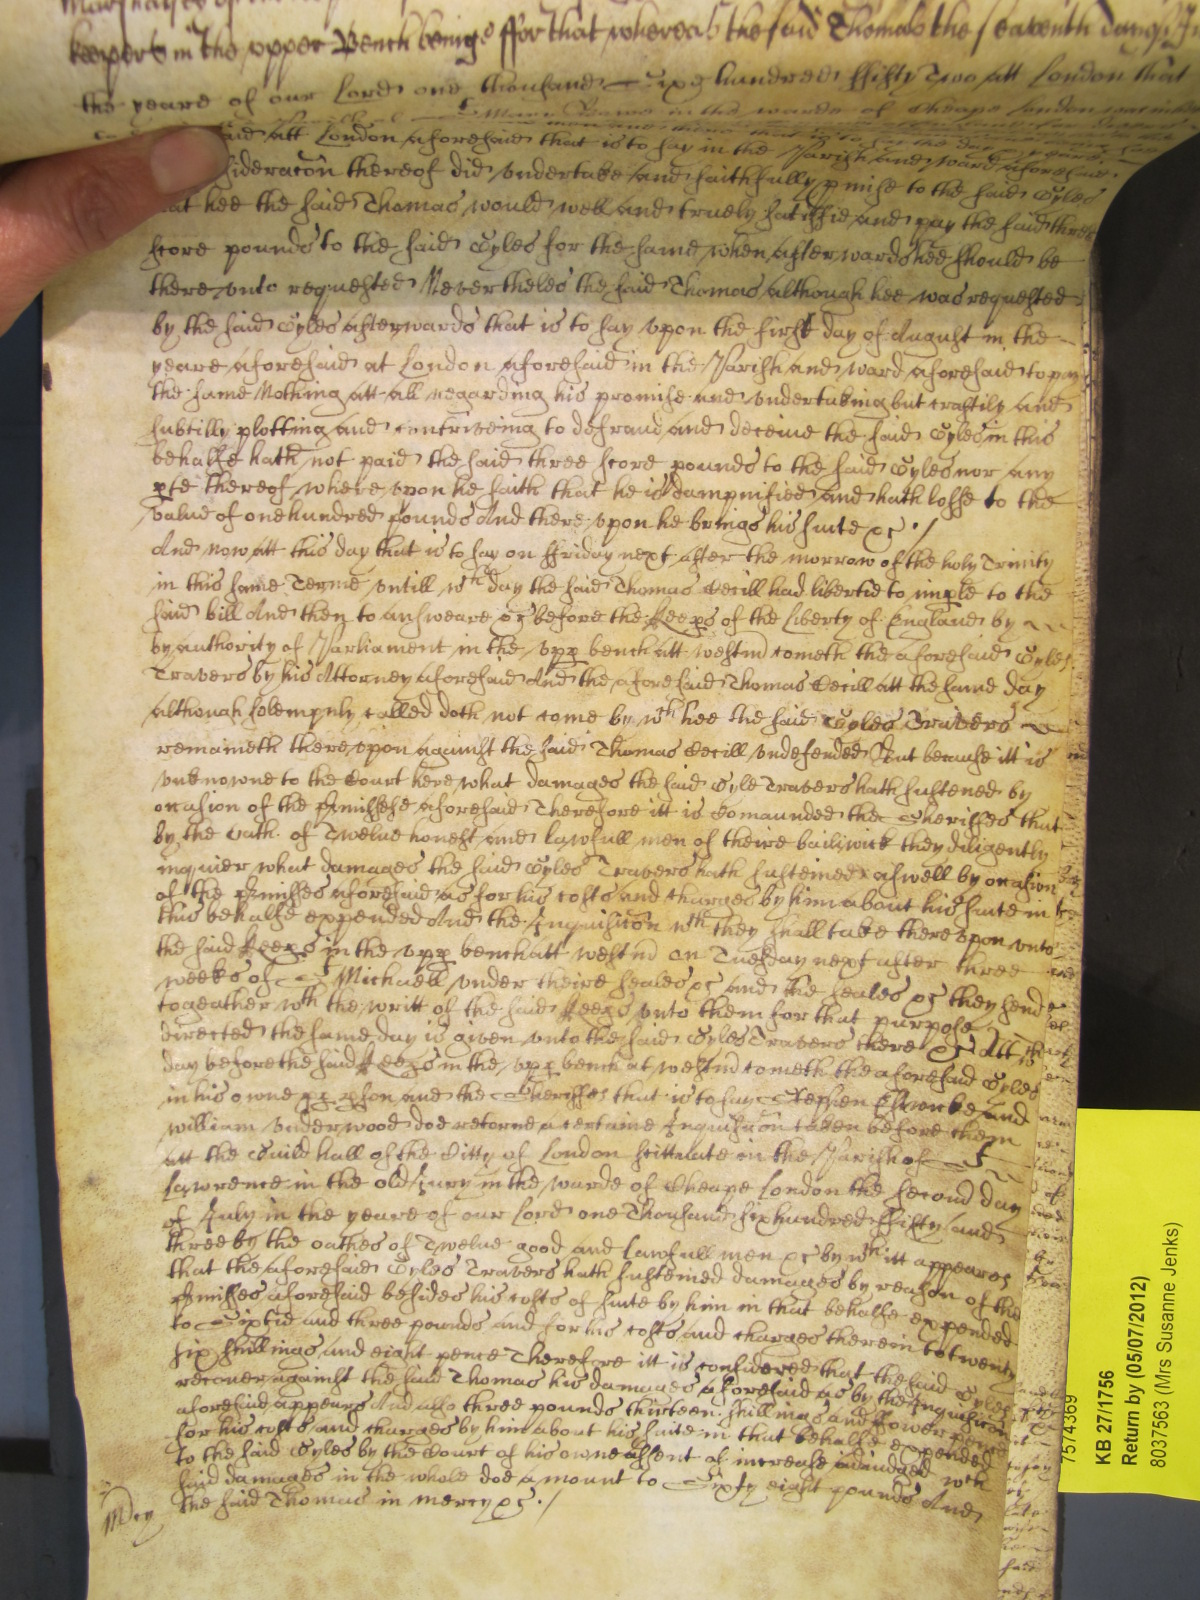 keepers in the upper Bench being ffor that whereas the said Thomas the seaventh day
the yeare of our Lord one thousand Sixe hundred ffifty Two att London that
in the warde of Cheape London
att London aforesaid that is to say in the Parish and ward aforesaid
thereof did undertake and faithfully pmise to the said Gyles
hee the said Thomas would well and truely satisfie and pay the said three
score pounds to the said Gyles for the same when afterwards hee should be
there unto requested Nevertheles the said Thomas although hee was requested
by the said Gyles afterwards that is to say upon the first day of August in the
yeare aforesaid at London aforesaid in the Parish and ward aforesaid to pay
the same Nothing att all regarding his promise and undertaking but craftily and
subtilly plotting and contriveing to defraud and deceive the said Gyles in this
behalfe hath not paid the said three score pounds to the said Gyles nor any
pte thereof where upon he saith that he is dampnified and hath losse to the
value of one hundred pounds And there upon he brings his suite &c ./
And now att this day that is to say on ffriday next after the morrow of the holy Trinity
in this same Terme untill wch day the said Thomas Cecill had libertie to imple to the
said bill And then to answeare &c before the Keeps of the Liberty of England by
by authority of Parliament in the upp bench att westm cometh the aforesaid Gyles
Travers by his Attorney aforesaid And the aforesaid Thomas Cecill att the same day
although solempnly called doth not come by wch hee the said Gyles Travers
remaineth there upon against the said Thomas Cecill undefended But because itt is
unknowne to the Court here what damages the said Gyle Travers hath sustened by
occasion of the Pmisses aforesaid Therefore itt is Comaunded the Sheriffes that
by the oath of Twelve honest and lawfull men of theire bailiwick they diligently
inquier what damages the said Gyles Travers hath susteined aswell by occasion
of the Pmisses aforesaid as for his costs and charges by him about his suite in
this behalfe expended And the Inquisicon wch they shall take there upon unto
the said Keeps in the upp bench att westm on Tuesday next after three
weeks of St Michaell under theire seales &c and the seales &c they send
togeather wth the writt of the said Keeps unto them for that purpose
directed the same day is given unto the said Gyles Travers there &c Att
day before the said Keeps in the upp bench at westm cometh the aforesaid Gyles
in his owne pson and the Sheriffes that is to say Stephen and
william underwood doe retorne a certaine Inquisicon taken before them
att the Guild hall of the Citty of London scittuate in the Parish of St
Lawrence in the old Jury in the warde of Cheape London the second day
of July in the yeare of our Lord one Thousand six hundred ffifty and
three by the oathes of Twelve good and lawfull men &c by wch itt appeares
that the aforesaid Gyles Travers hath susteined damages by reason of the
Pmisses aforesaid besides his costs of suite by him in that behalfe expended
to Sixtie and three pounds and for his costs and charges therein to twenty
six shillings and eight pence Therefore itt is considered that the said Gyles
recover against the said Thomas his damages aforesaid as by the Inquisicon
aforesaid appears And also three pounds thirteen shillings and fower pence
for his costs and charges by him about his suite in that behalfe expended
to the said Gyles by the Court of his owne assent of increase adiudged wch
said damages in the whole doe amount to Sixty eight pounds And
the said Thomas in mercy &c ./
Mcy
7574369
KB 27/1756
Return by (05/07/2012)
8037563 (Mrs Susanne Jenks)